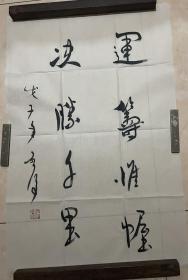 運籌帷幄
决勝千里
戊子年